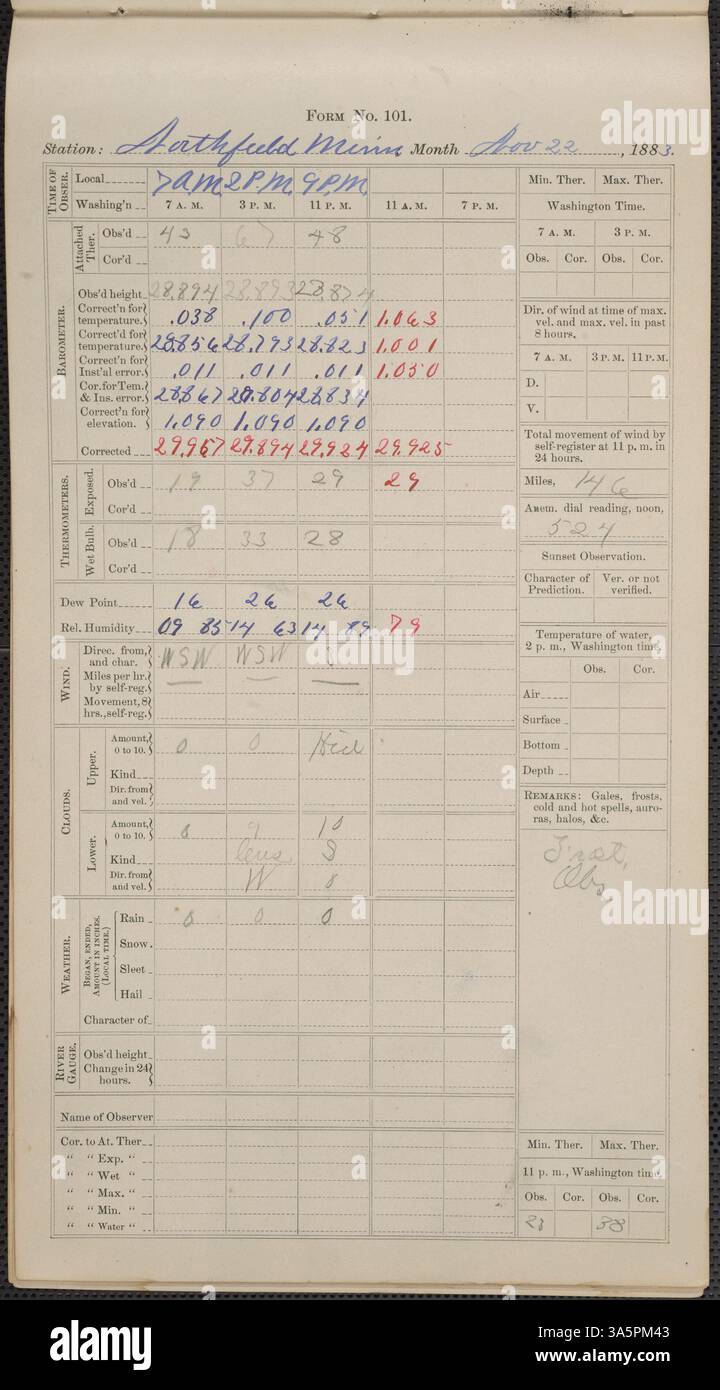 FORM No. 101.
Station: Northfield Minn Month Nov 22, 1883.
TIME OF OBSER. Local 7 A.M. 2 P.M. 9 P.M.
Washing'n 7 A. M. 3 P. M. 11 P. M. 11 A. M. 7 P. M.
BAROMETER.
Attached Ther. Obs'd 43 67 48
Cor'd
Obs'd height 28.894 28.893 28.874
Correct'n for temperature. .038 .100 .051 1.063
Correct'd for temperature. 28.856 28.793 28.823 1.001
Correct'n for Inst'al error. .011 .011 .011 1.050
Cor. for Tem. & Ins. error. 28.867 28.804 28.834
Correct'n for elevation. 1.090 1.090 1.090
Corrected 29.957 29.894 29.924 29.925
THERMOMETERS.
Exposed. Obs'd 19 37 29 29
Cor'd
Wet Bulb. Obs'd 18 33 28
Cor'd
Dew Point 16 26 26
Rel. Humidity 09 85 14 63 14 89 79
WIND.
Direc. from, and char. WSW WSW
Miles per hr. by self-reg. — — —
Movement, 8 hrs., self-reg.
CLOUDS.
Upper. Amount, 0 to 10. 0 0 Hid
Kind
Dir. from and vel.
Lower. Amount, 0 to 10. 0 9 10
Kind S
Dir. from and vel. W 0
WEATHER.
BEGAN, ENDED, AMOUNT IN INCHES. (LOCAL TIME.)
Rain 0 0 0
Snow.
Sleet
Hail
Character of
RIVER GAUGE.
Obs'd height
Change in 24 hours.
Name of Observer
Cor. to At. Ther
" " Exp. "
" " Wet "
" " Max. "
" " Min. "
" " Water "
Min. Ther. Max. Ther.
Washington Time.
7 A. M. 3 P. M.
Obs. Cor. Obs. Cor.
Dir. of wind at time of max. vel. and max. vel. in past 8 hours.
7 A. M. 3 P. M. 11 P. M.
D.
V.
Total movement of wind by self-register at 11 p. m. in 24 hours.
Miles, 146
Anem. dial reading, noon,
524
Sunset Observation.
Character of Prediction. Ver. or not verified.
Temperature of water, 2 p. m., Washington time.
Obs. Cor.
Air
Surface
Bottom
Depth
REMARKS: Gales, frosts, cold and hot spells, auroras, halos, &c.
Frost,
Obs
Min. Ther. Max. Ther.
11 p. m., Washington time.
Obs. Cor. Obs. Cor.
38
alamy
Image ID: 3A5PM43
www.alamy.com